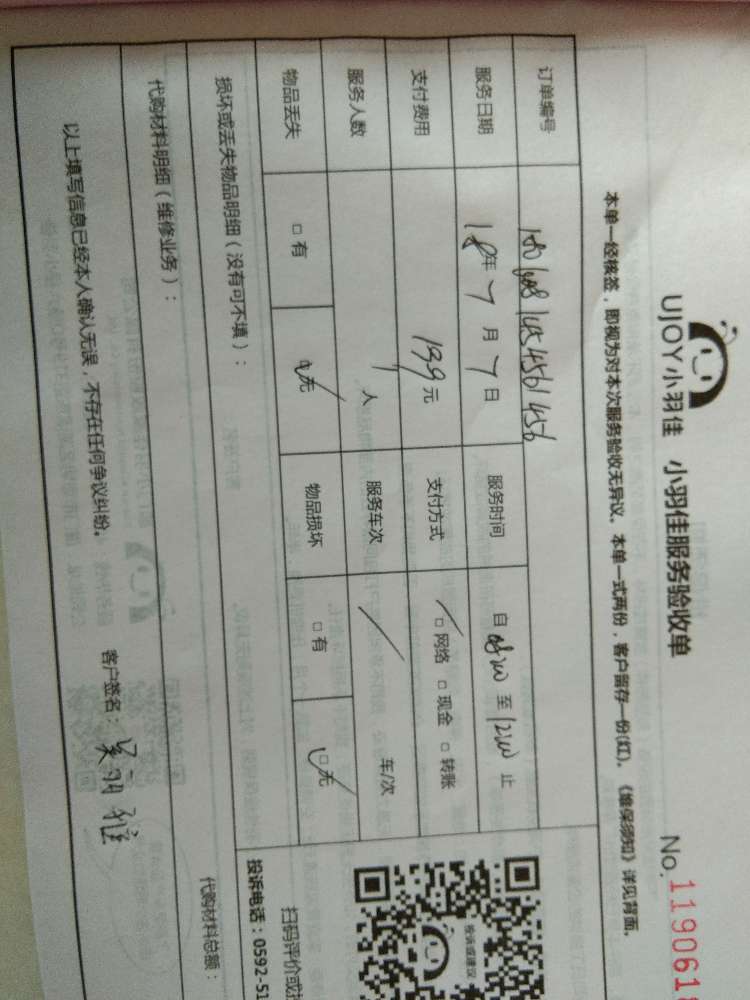 UJOY小羽佳 小羽佳服务验收单
No. 1190618
本单一经核签，即视为对本次服务验收无异议。本单一式两份，客户留存一份(红)。《维保须知》详见背面。
订单编号
服务日期 18年 7月 7日 服务时间 自 至 止
支付费用 199元 支付方式 □网络 □现金 □转账
服务人数 1人 服务车次 / 车/次
物品丢失 □有 □无 物品损坏 □有 □无
损坏或丢失物品明细（没有可不填）：
代购材料明细（维修业务）： 代购材料总额：
投诉或建议
扫码评价或投
投诉电话：0592-51
以上填写信息已经本人确认无误，不存在任何争议纠纷。 客户签名：吴丽雅